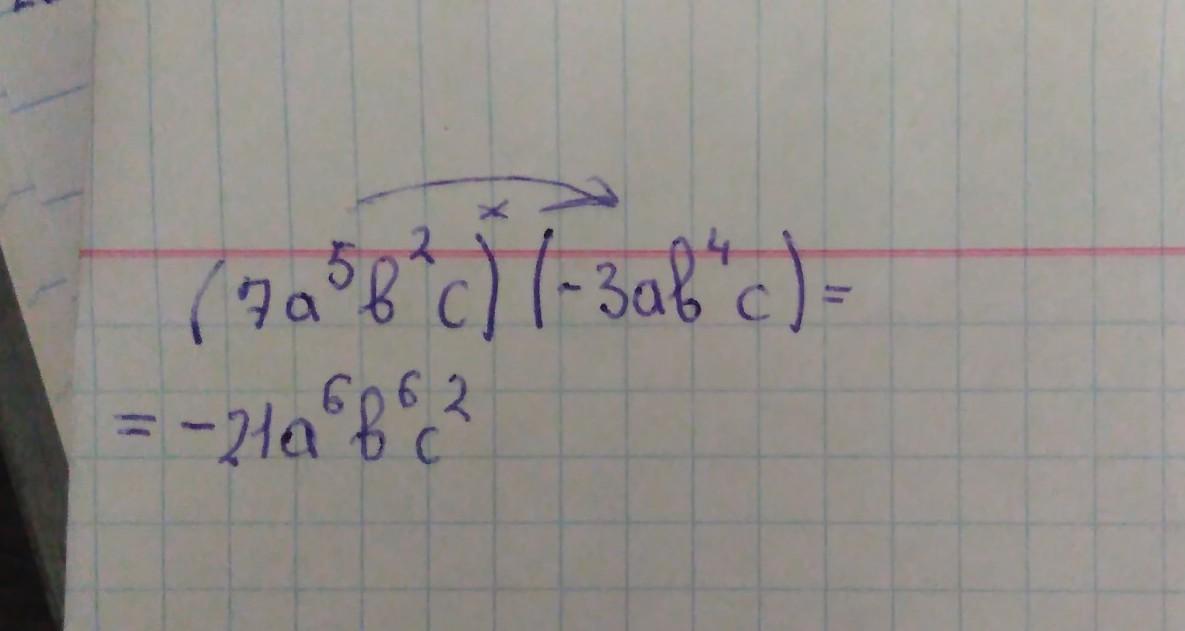 (7a⁵b²c) × (-3ab⁴c) =
= -21a⁶b⁶c²